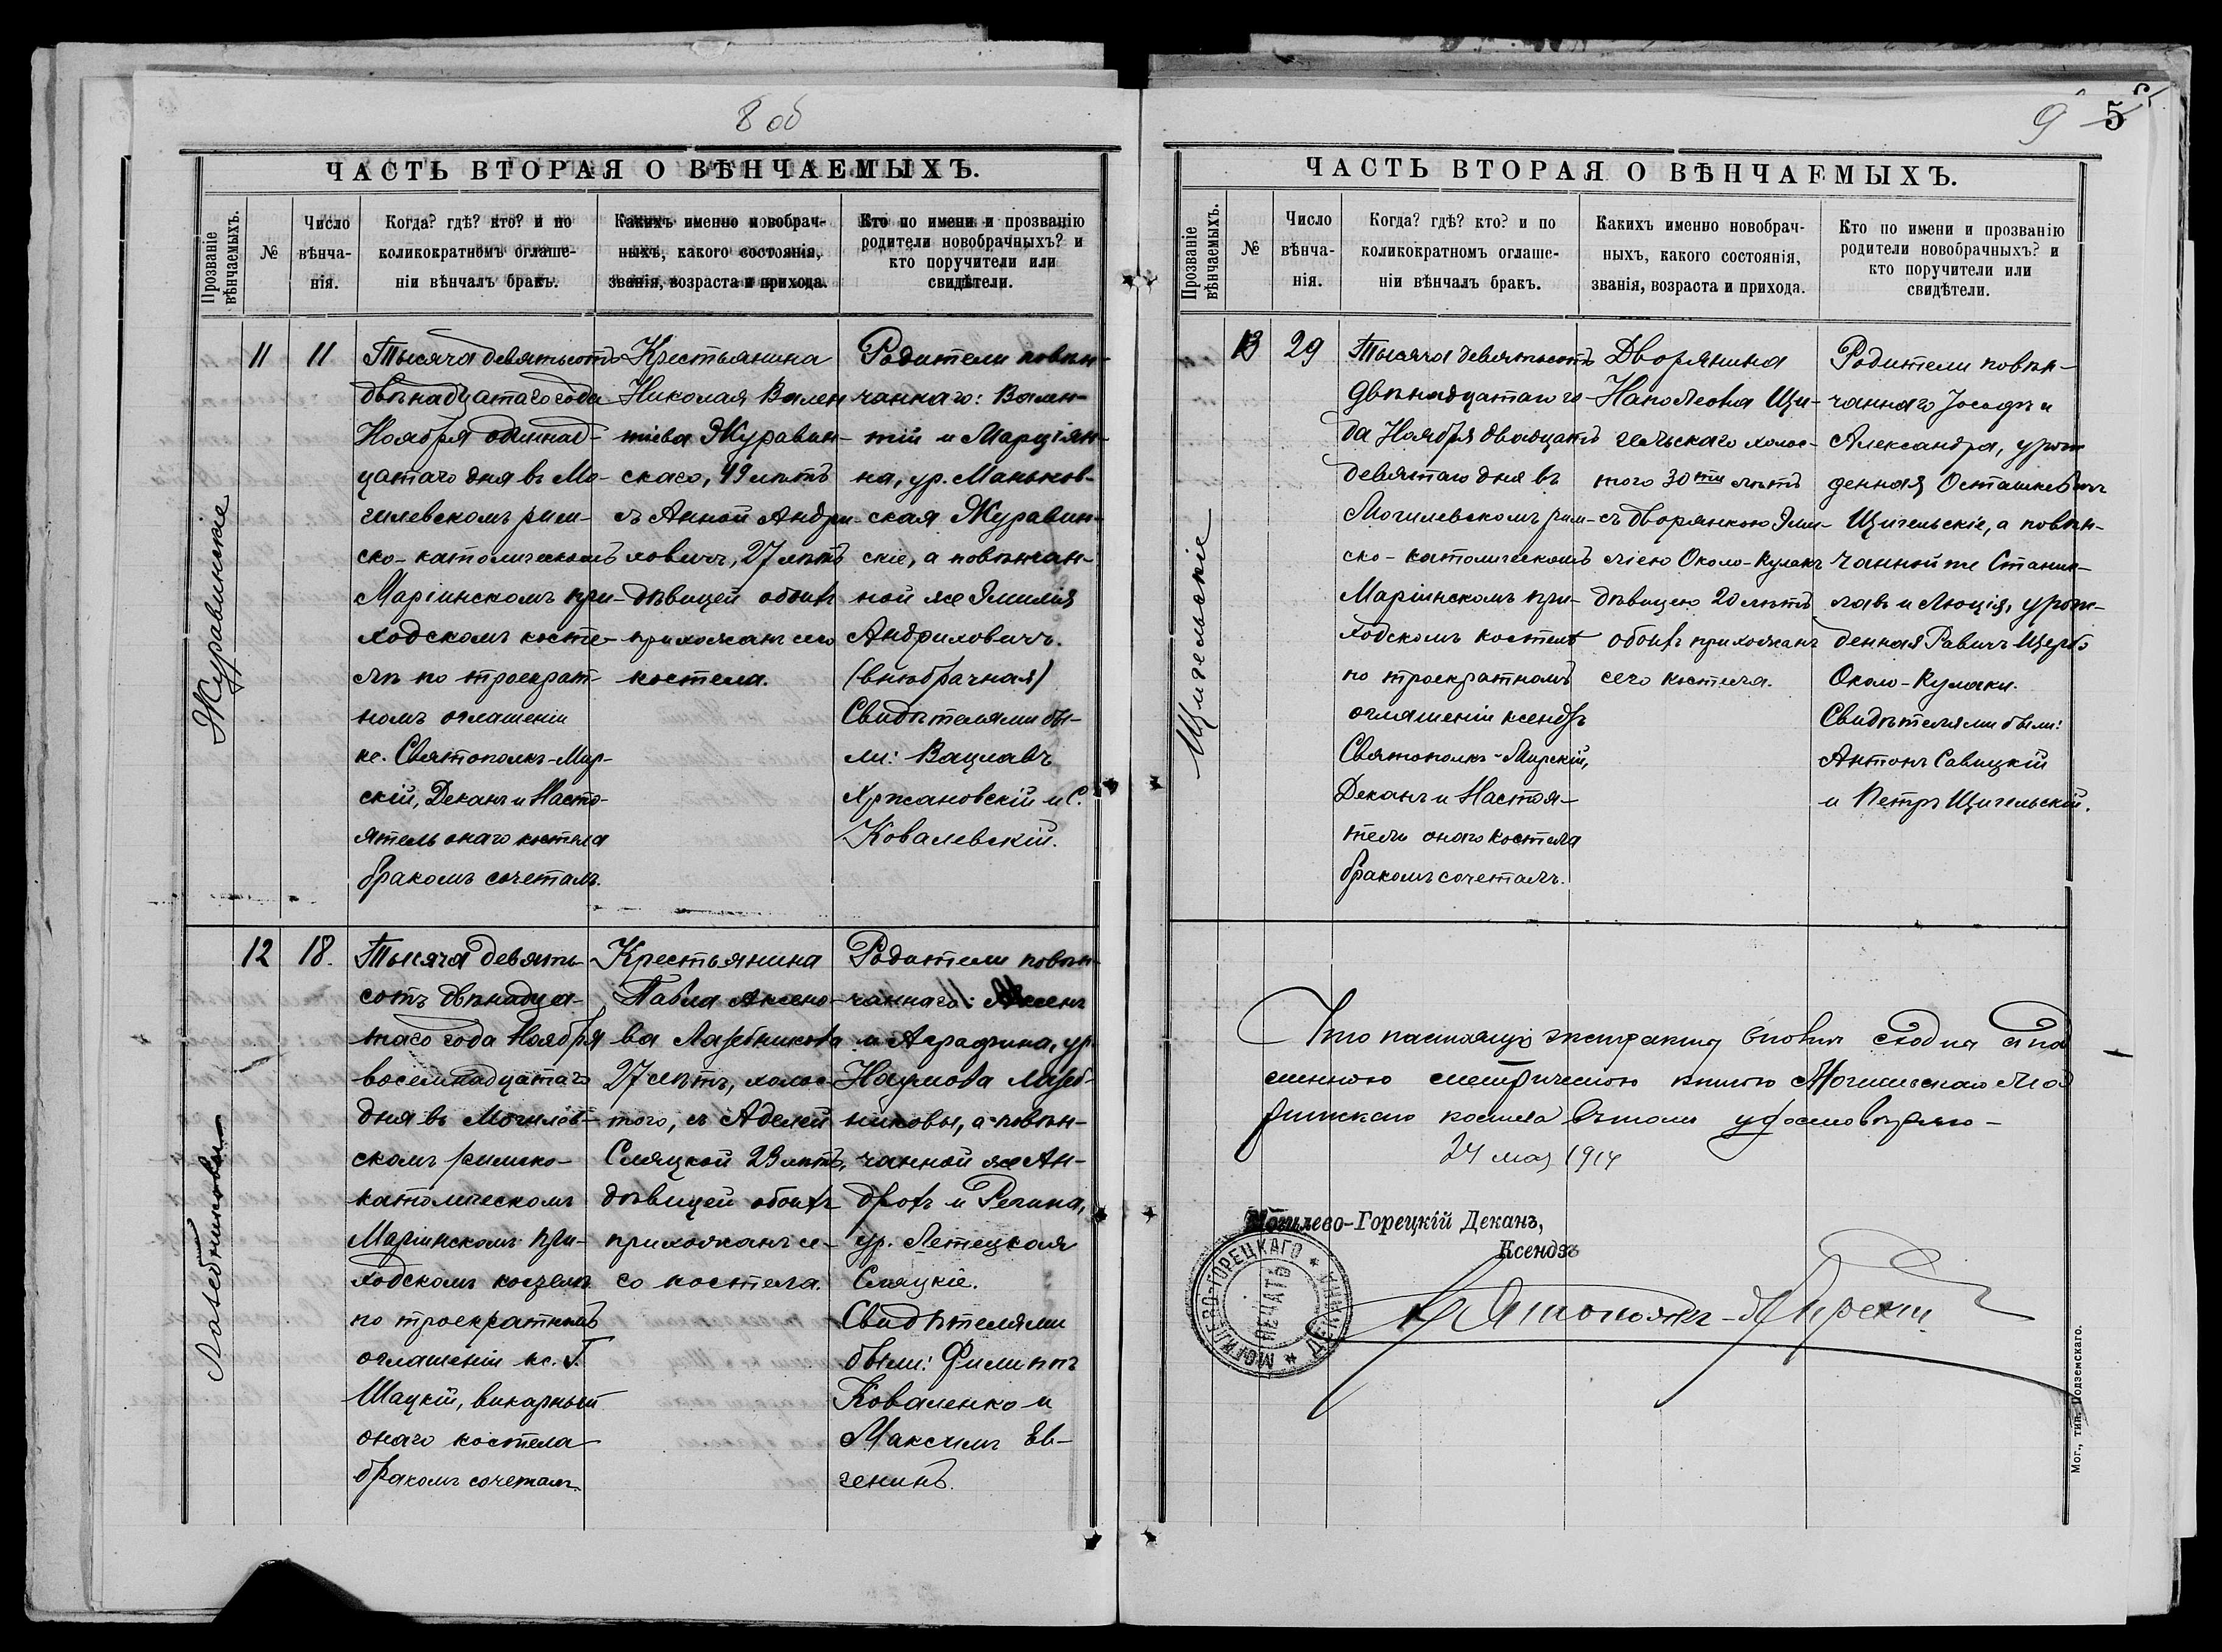 8 об
ЧАСТЬ ВТОРАЯ О ВѢНЧАЕМЫХЪ.
Прозваніе
вѣнчаемыхъ.
№
Число
вѣнча-
нія.
Когда? гдѣ? кто? и по
коликократномъ оглаше-
ніи вѣнчалъ бракъ.
Какихъ именно новобрач-
ныхъ, какого состоянія,
званія, возраста и прихода.
Кто по имени и прозванію
родители новобрачныхъ? и
кто поручители или
свидѣтели.
Журавинскіе
11
11
Тысяча девятьсотъ
двѣнадцатаго года
Ноября одиннад-
цатаго дня въ Мо-
гилевскомъ рим-
ско-католическомъ
Маріинскомъ при-
ходскомъ косте-
лѣ по троекрат-
номъ оглашеніи
кс. Святополкъ-Мир-
скій, Деканъ и Насто-
ятель онаго костела
бракомъ сочеталъ.
Крестьянина
Николая Вален
тіева Журавин-
скаго, 49 лѣтъ
съ Анной Андри-
ховичъ, 27 лѣтъ
дѣвицей обоихъ
прихожанъ сего
костела.
Родители повѣн-
чаннаго: Вален-
тій и Марціян-
на, ур. Маньков-
ская Журавин-
скіе, а повѣнчан-
ной же Эмилія
Андриховичъ.
(внѣбрачная)
Свидѣтелями бы-
ли: Вацлавъ
Хржановскій и С.
Ковалевскій.
Лазебниковы
12
18.
Тысяча девять-
сотъ двѣнадца-
таго года Ноября
восемнадцатаго
дня въ Могилев-
скомъ римско-
католическомъ
Маріинскомъ при-
ходскомъ костелѣ
по троекратномъ
оглашеніи кс. Г.
Шацкій, викарный
онаго костела
бракомъ сочеталъ.
Крестьянина
Павла Аксено-
ва Лазебникова
27 лѣтъ, холос-
того, съ Аделей
Сляцкой 23 лѣтъ,
дѣвицей обоихъ
прихожанъ се-
го костела.
Родители повѣн-
чаннаго: Аксенъ
и Аграфина, ур.
Наумова Лазеб-
никовы, а повѣн-
чанной же Ан-
дрохъ и Регина,
ур. Летецкая
Сляцкіе.
Свидѣтелями
были: Филиппъ
Коваленко и
Максимъ Ев-
генинъ.
9 5
ЧАСТЬ ВТОРАЯ О ВѢНЧАЕМЫХЪ.
Прозваніе
вѣнчаемыхъ.
№
Число
вѣнча-
нія.
Когда? гдѣ? кто? и по
коликократномъ оглаше-
ніи вѣнчалъ бракъ.
Какихъ именно новобрач-
ныхъ, какого состоянія,
званія, возраста и прихода.
Кто по имени и прозванію
родители новобрачныхъ? и
кто поручители или
свидѣтели.
Щигельскіе
13
29
Тысяча девятьсотъ
двѣнадцатаго го-
да Ноября двадцать
девятаго дня въ
Могилевскомъ рим-
ско-католическомъ
Маріинскомъ при-
ходскомъ костелѣ
по троекратномъ
оглашеніи ксендзъ
Святополкъ-Мирскій,
Деканъ и Настоя-
тель онаго костела
бракомъ сочеталъ.
Дворянина
Наполеона Щи-
гельскаго холос-
того 30ти лѣтъ
съ дворянкою Эми-
ліею Около-Кулакъ
дѣвицею 20 лѣтъ
обоихъ прихожанъ
сего костела.
Родители повѣн-
чаннаго Іосифъ и
Александра, урож
денная Осташкевичъ
Щигельскіе, а повѣн-
чанной же Станис-
лавъ и Люція, урож-
денная Равичъ-Щербо
Около-Кулаки.
Свидѣтелями были:
Антонъ Савицкій
и Петръ Щигельскій.
Что настоящій экстрактъ сходна
метрическою книгою Могилевскаго Ма
ріинскаго костела въ томъ удостовѣряю-
24 мая 1914
Могилево-Горецкій Деканъ,
Ксендзъ
Святополкъ-Мирскій
МОГИЛЕВО-ГОРЕЦКАГО ДЕКАНА
ПЕЧАТЬ
Мог., тип. Подземскаго.